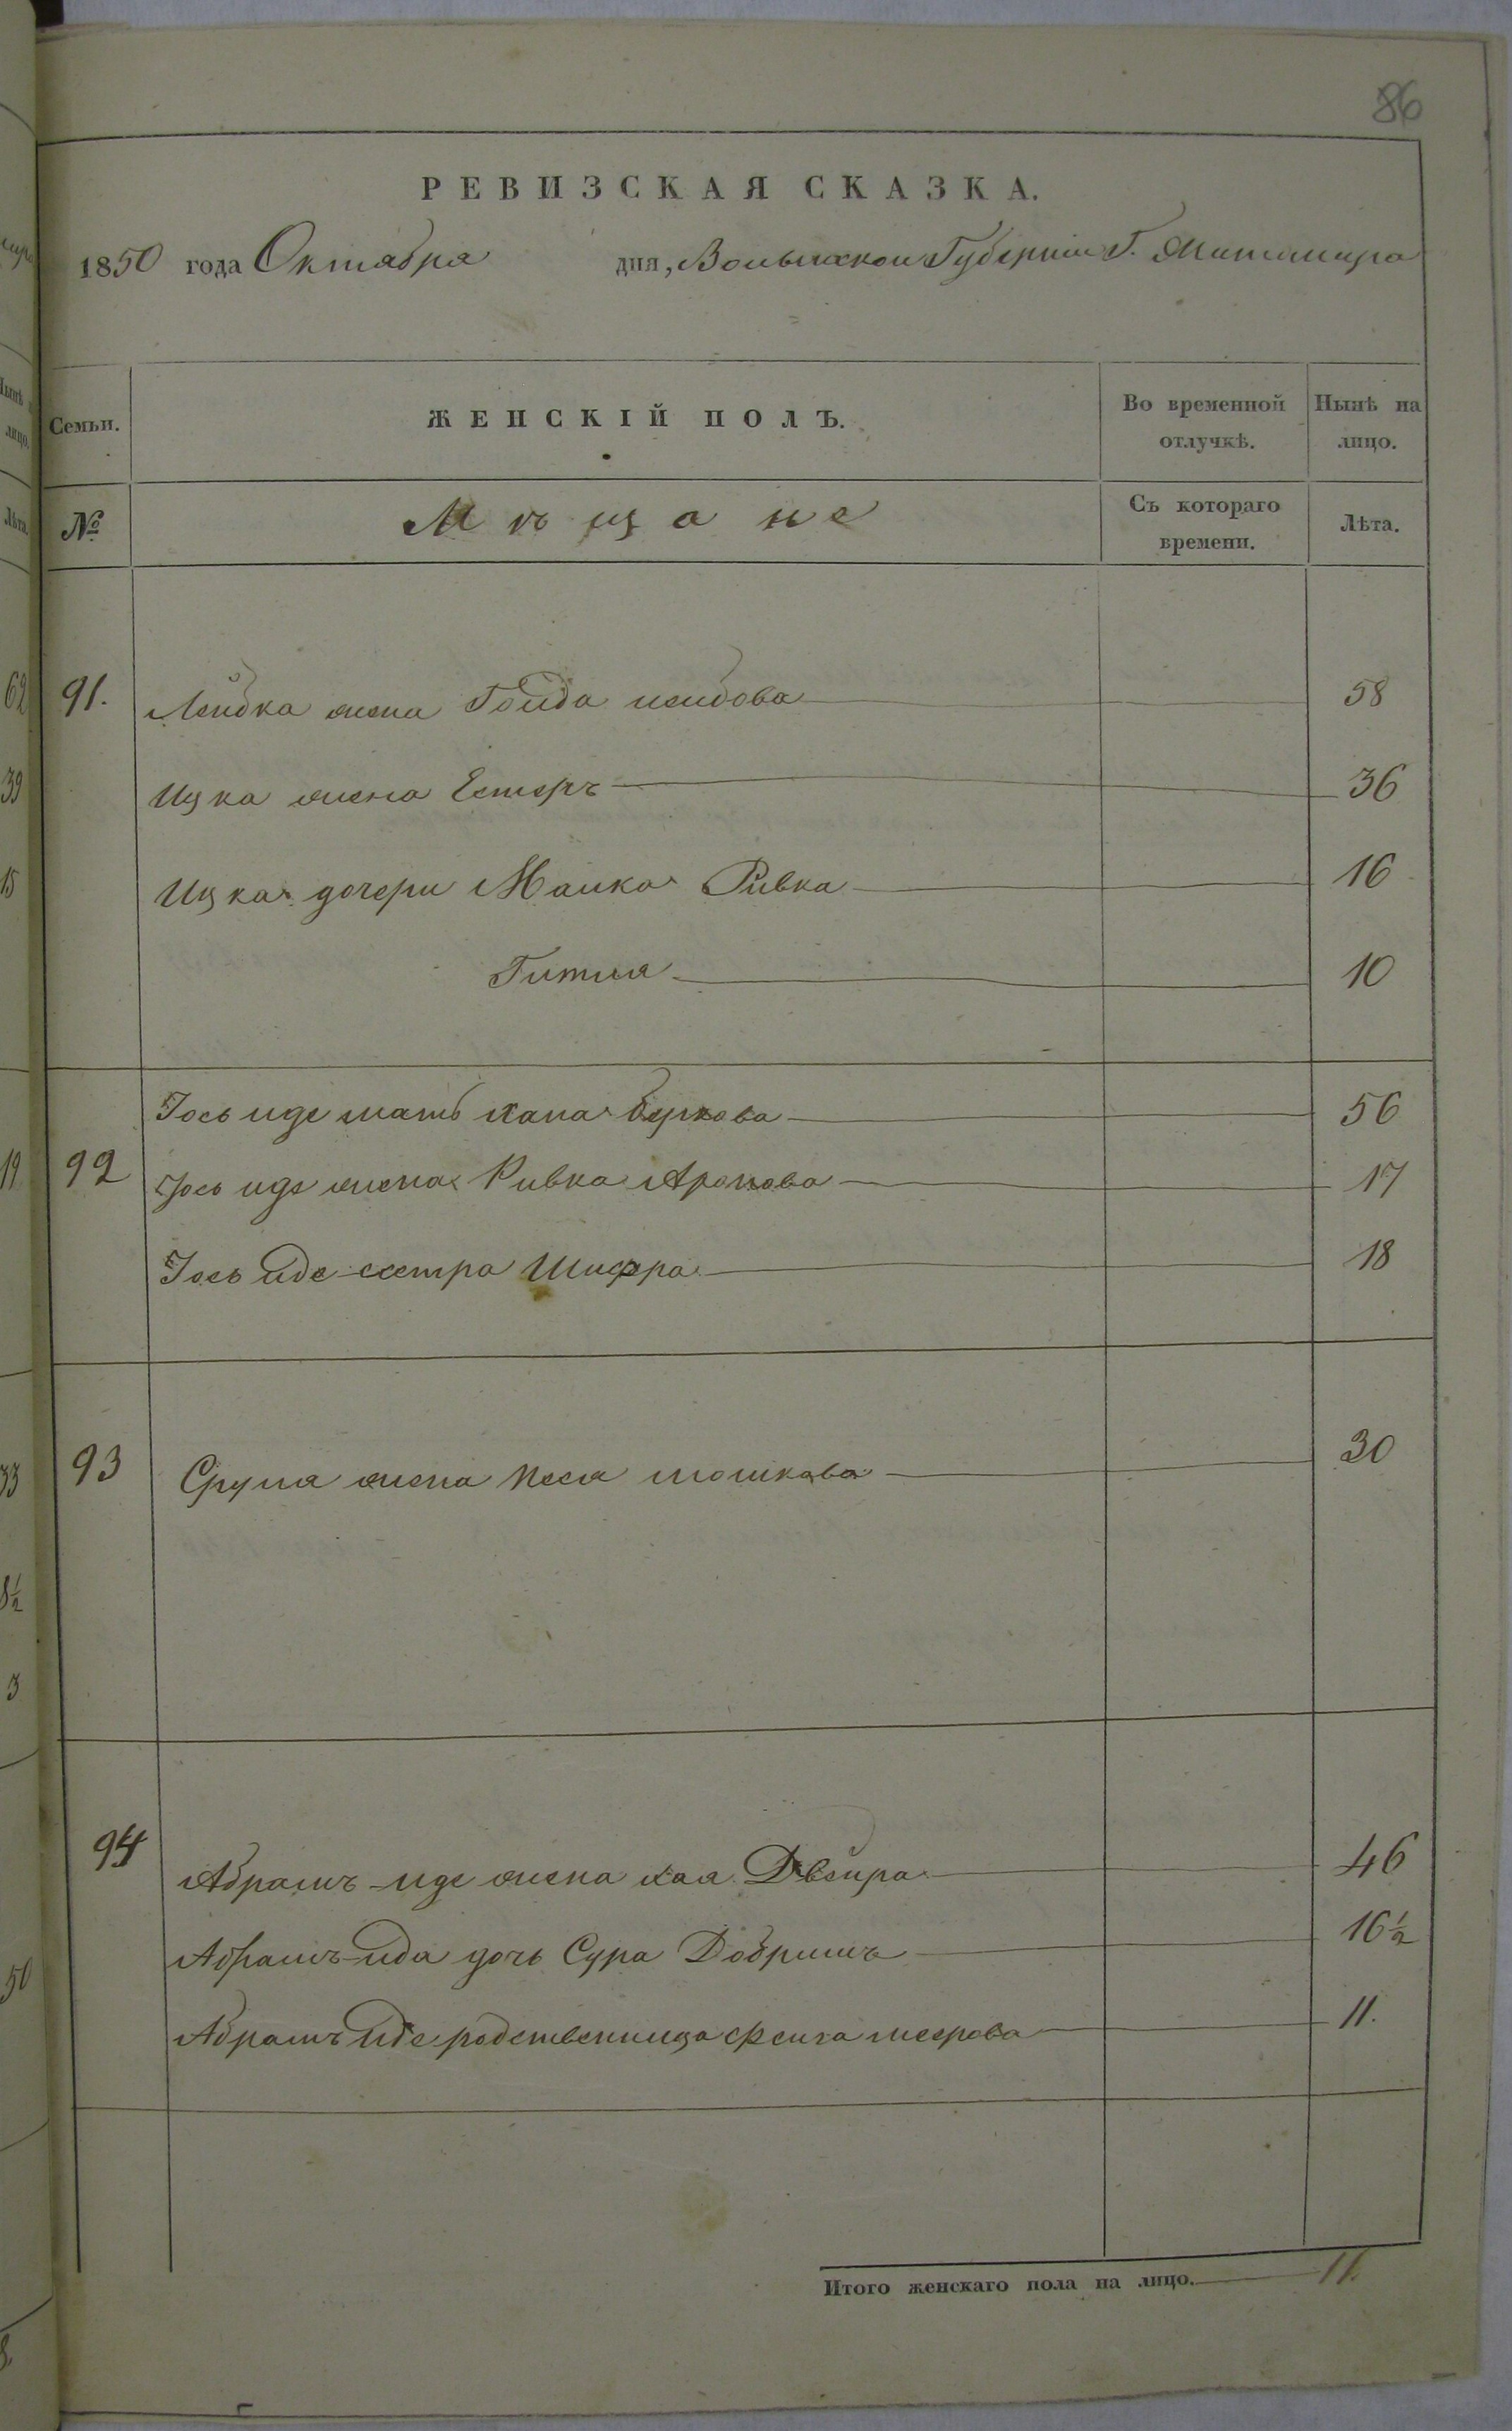 86
РЕВИЗСКАЯ СКАЗКА.
1850 года Октября дня, Волынской Губернии Г. Житомира
Семьи. ЖЕНСКІЙ ПОЛЪ. Во временной отлучкѣ. Нынѣ на лицо.
№ Мѣщане Съ котораго времени. Лѣта.
91. Лейбка жена Гольда лейбова 58
Ицка жена Естеръ 36
Ицка дочери Малка Ривка 16
Гитля 10
Іось иде мать хана беркова 56
92 Іось иде жена Ривка Аронова 17
Іось иде сестра Шифра 18
93 Сруля жена Песя мошкова 30
94 Абрамъ иде жена хая Двейра 46
Абрамъ ида дочь Сура Добришъ 16½
Абрамъ иде родственница Фейга меерова 11.
Итого женскаго пола на лицо. 11.
62
39
15
19
33
8½
3
50